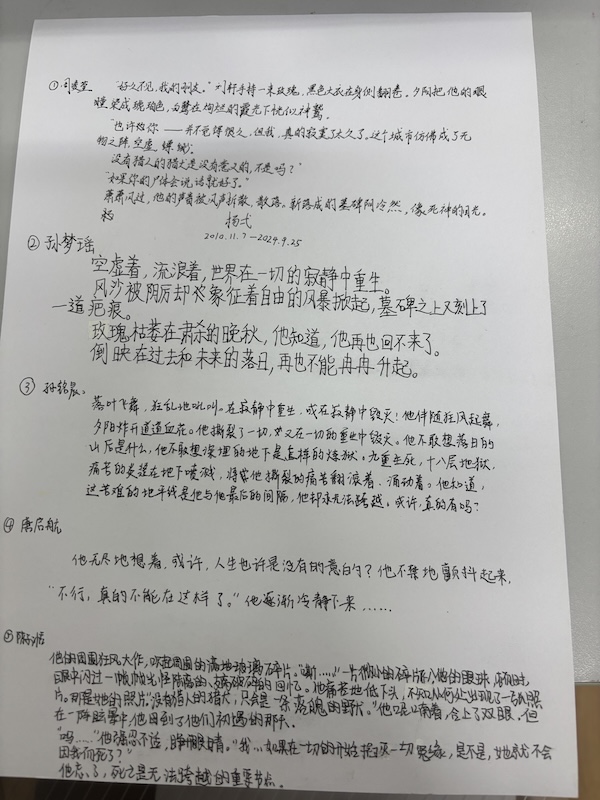 ① 司凌至 "好久不见,我的刑友。"刘杆手持一束玫瑰,黑色大衣在身侧翻卷。夕阳把他的眼
瞳染成琥珀色,白鹭在绚烂的霞光下恍似神鹭。
"也许给你——并不觉得很久,但我,真的寂寞了太久了。这个城市仿佛成了无
物之阵,空虚,缥缈。
没有猎人的猎犬是没有意义的,不是吗?"
"如果你的尸体会说话就好了。"
萧萧风过,他的声音被风声拆散,散落。新落成的墓碑阴冷然,像死神的目光。
杨弋
2010.11.7—2024.9.25
② 孙梦瑶
空虚着,流浪着,世界在一切的寂静中重生。
风沙被阴厉却象征着自由的风暴掀起,墓碑之上又刻上了
一道疤痕。
玫瑰枯萎在肃杀的晚秋,他知道,他再也回不来了。
倒映在过去和未来的落丑,再也不能冉冉升起。
③ 孙铭晨。
落叶飞舞,狂乱地吼叫。在寂静中重生,或在寂静中毁灭!他伴随狂风起舞,
夕阳炸开道道血花。他撕裂了一切,又在一切的重生中毁灭。他不敢想落日的
山后是什么,他不敢想深埋的地下是怎样的炼狱。九重生死,十八层地狱,
痛苦的炎浆在地下喷溅,将家他撕裂的痛苦翻滚着,涌动着。他知道,
这苦难的地平线是他与他最后的间隔,他却永无法跨越。或许,真的有吗?
④ 唐启航
他无尽地想着,或许,人生也许是没有目的意的?他不禁地颤抖起来,
"不行,真的不能在这样了。"他逐渐冷静下来……
⑤
他的周围狂风大作,吹起周围的满地玻璃碎片。"嘶……"一片微小的碎片 他的眼球,
眼中闪过一帧帧光怪陆离的、 破碎的回忆。他痛苦地低下头,不知从何处出现了一张照
片。那是她的照片"没有猎人的猎犬,只是一条落魄的野犬。"他呢喃着,合上了双眼,但
在一阵眩晕中,他回到了他们初遇的那天。
"吗……"他强忍不适,睁开眼睛。"我…如果在一切的开始 灭一切 缘,是不是,她就不会
因我们死了?"
他忘了,死亡是无法跨越的重要节点。